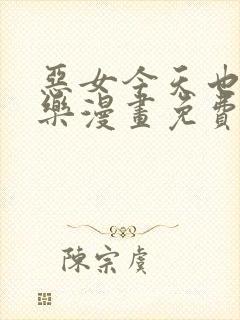 惡女今天也
樂漫畫免費
陳宗虞